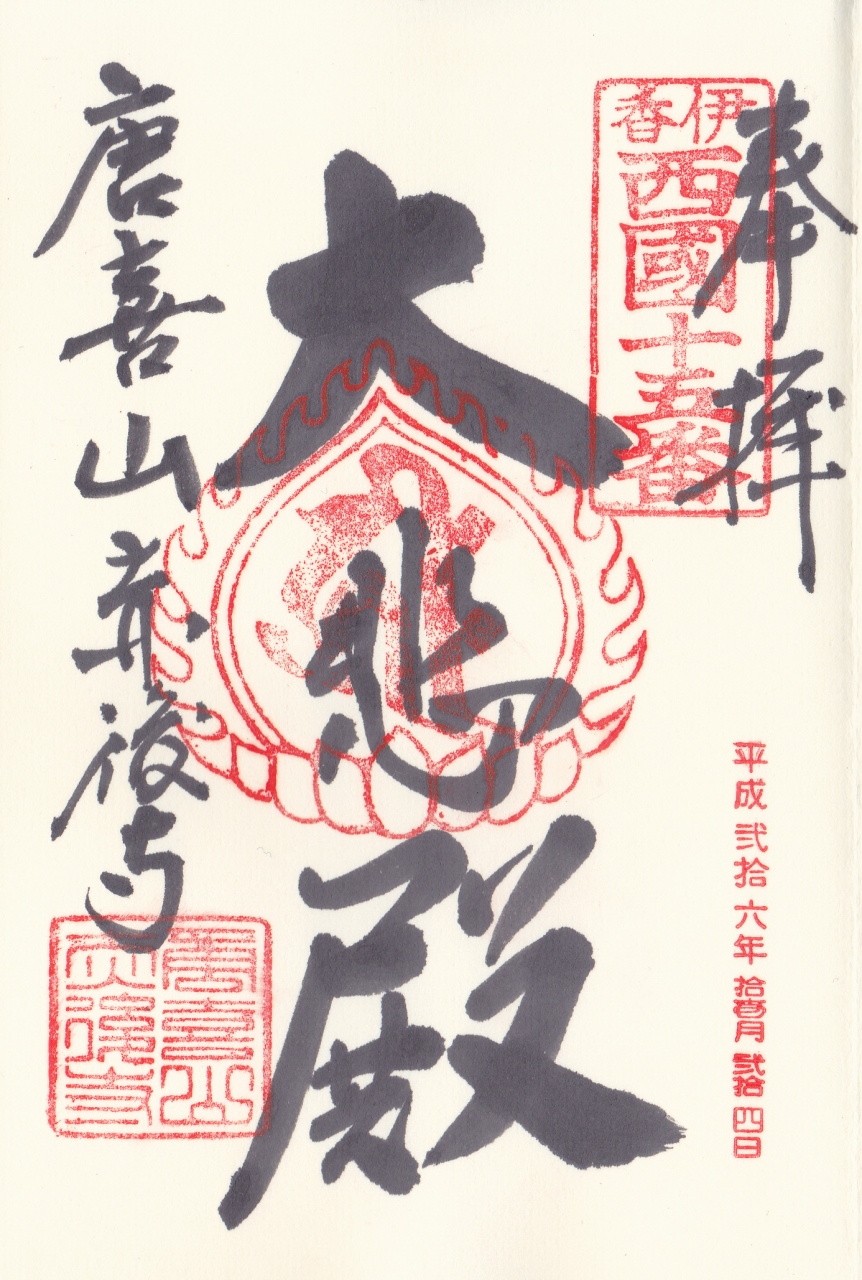 奉拝
伊香
西國十五番
平成弐拾六年拾壱月弐拾四日
大悲殿
唐喜山赤後寺
唐喜山
赤後寺